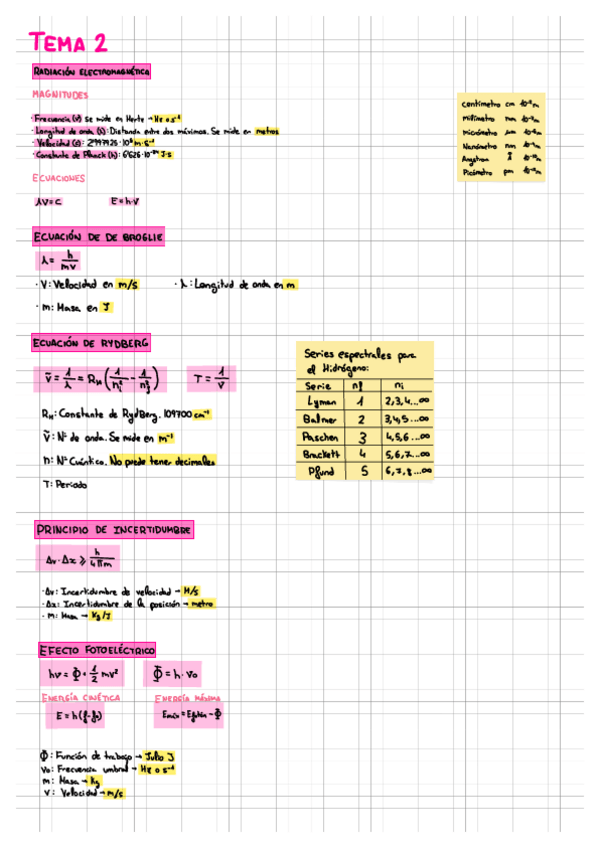 TEMA 2
RADIACIÓN ELECTROMAGNÉTICA
MAGNITUDES
· Frecuencia (ν) Se mide en Hertz → Hz o s⁻¹
· Longitud de onda (λ): Distancia entre dos máximos. Se mide en metros
· Velocidad (c): 2'997925·10⁸ m·s⁻¹
· Constante de Planck (h): 6'626·10⁻³⁴ J·s
centímetro cm 10⁻²m
milímetro mm 10⁻³m
micrómetro μm 10⁻⁶m
Nanómetro nm 10⁻⁹m
Angstron Å 10⁻¹⁰m
Picómetro pm 10⁻¹²m
ECUACIONES
λν=c E=h·ν
ECUACIÓN DE DE BROGLIE
λ= h/mv
· V: Velocidad en m/s · λ: Longitud de onda en m
· m: Masa en J
ECUACIÓN DE RYDBERG
ṽ = 1/λ = R_H (1/n₁² - 1/n₂²) T = 1/ν
R_H: Constante de Rydberg. 109700 cm⁻¹
ṽ: Nº de onda. Se mide en m⁻¹
n: Nº Cuántico. No puede tener decimales
T: Periodo
Series espectrales para
el Hidrógeno:
Serie nf ni
Lyman 1 2,3,4...∞
Balmer 2 3,4,5...∞
Paschen 3 4,5,6...∞
Brackett 4 5,6,7...∞
Pfund 5 6,7,8...∞
PRINCIPIO DE INCERTIDUMBRE
Δv·Δx ⩾ h/4πm
· Δv: Incertidumbre de velocidad → M/s
· Δx: Incertidumbre de la posición → metro
· m: Masa → Kg/J
EFECTO FOTOELÉCTRICO
hν = Φ + 1/2 mv² Φ = h·ν₀
ENERGÍA CINÉTICA ENERGÍA MÁXIMA
E = h(f-f₀)
Φ: Función de trabajo → Julio J
ν₀: Frecuencia umbral → Hz o s⁻¹
m: Masa → Kg
v: Velocidad → m/s